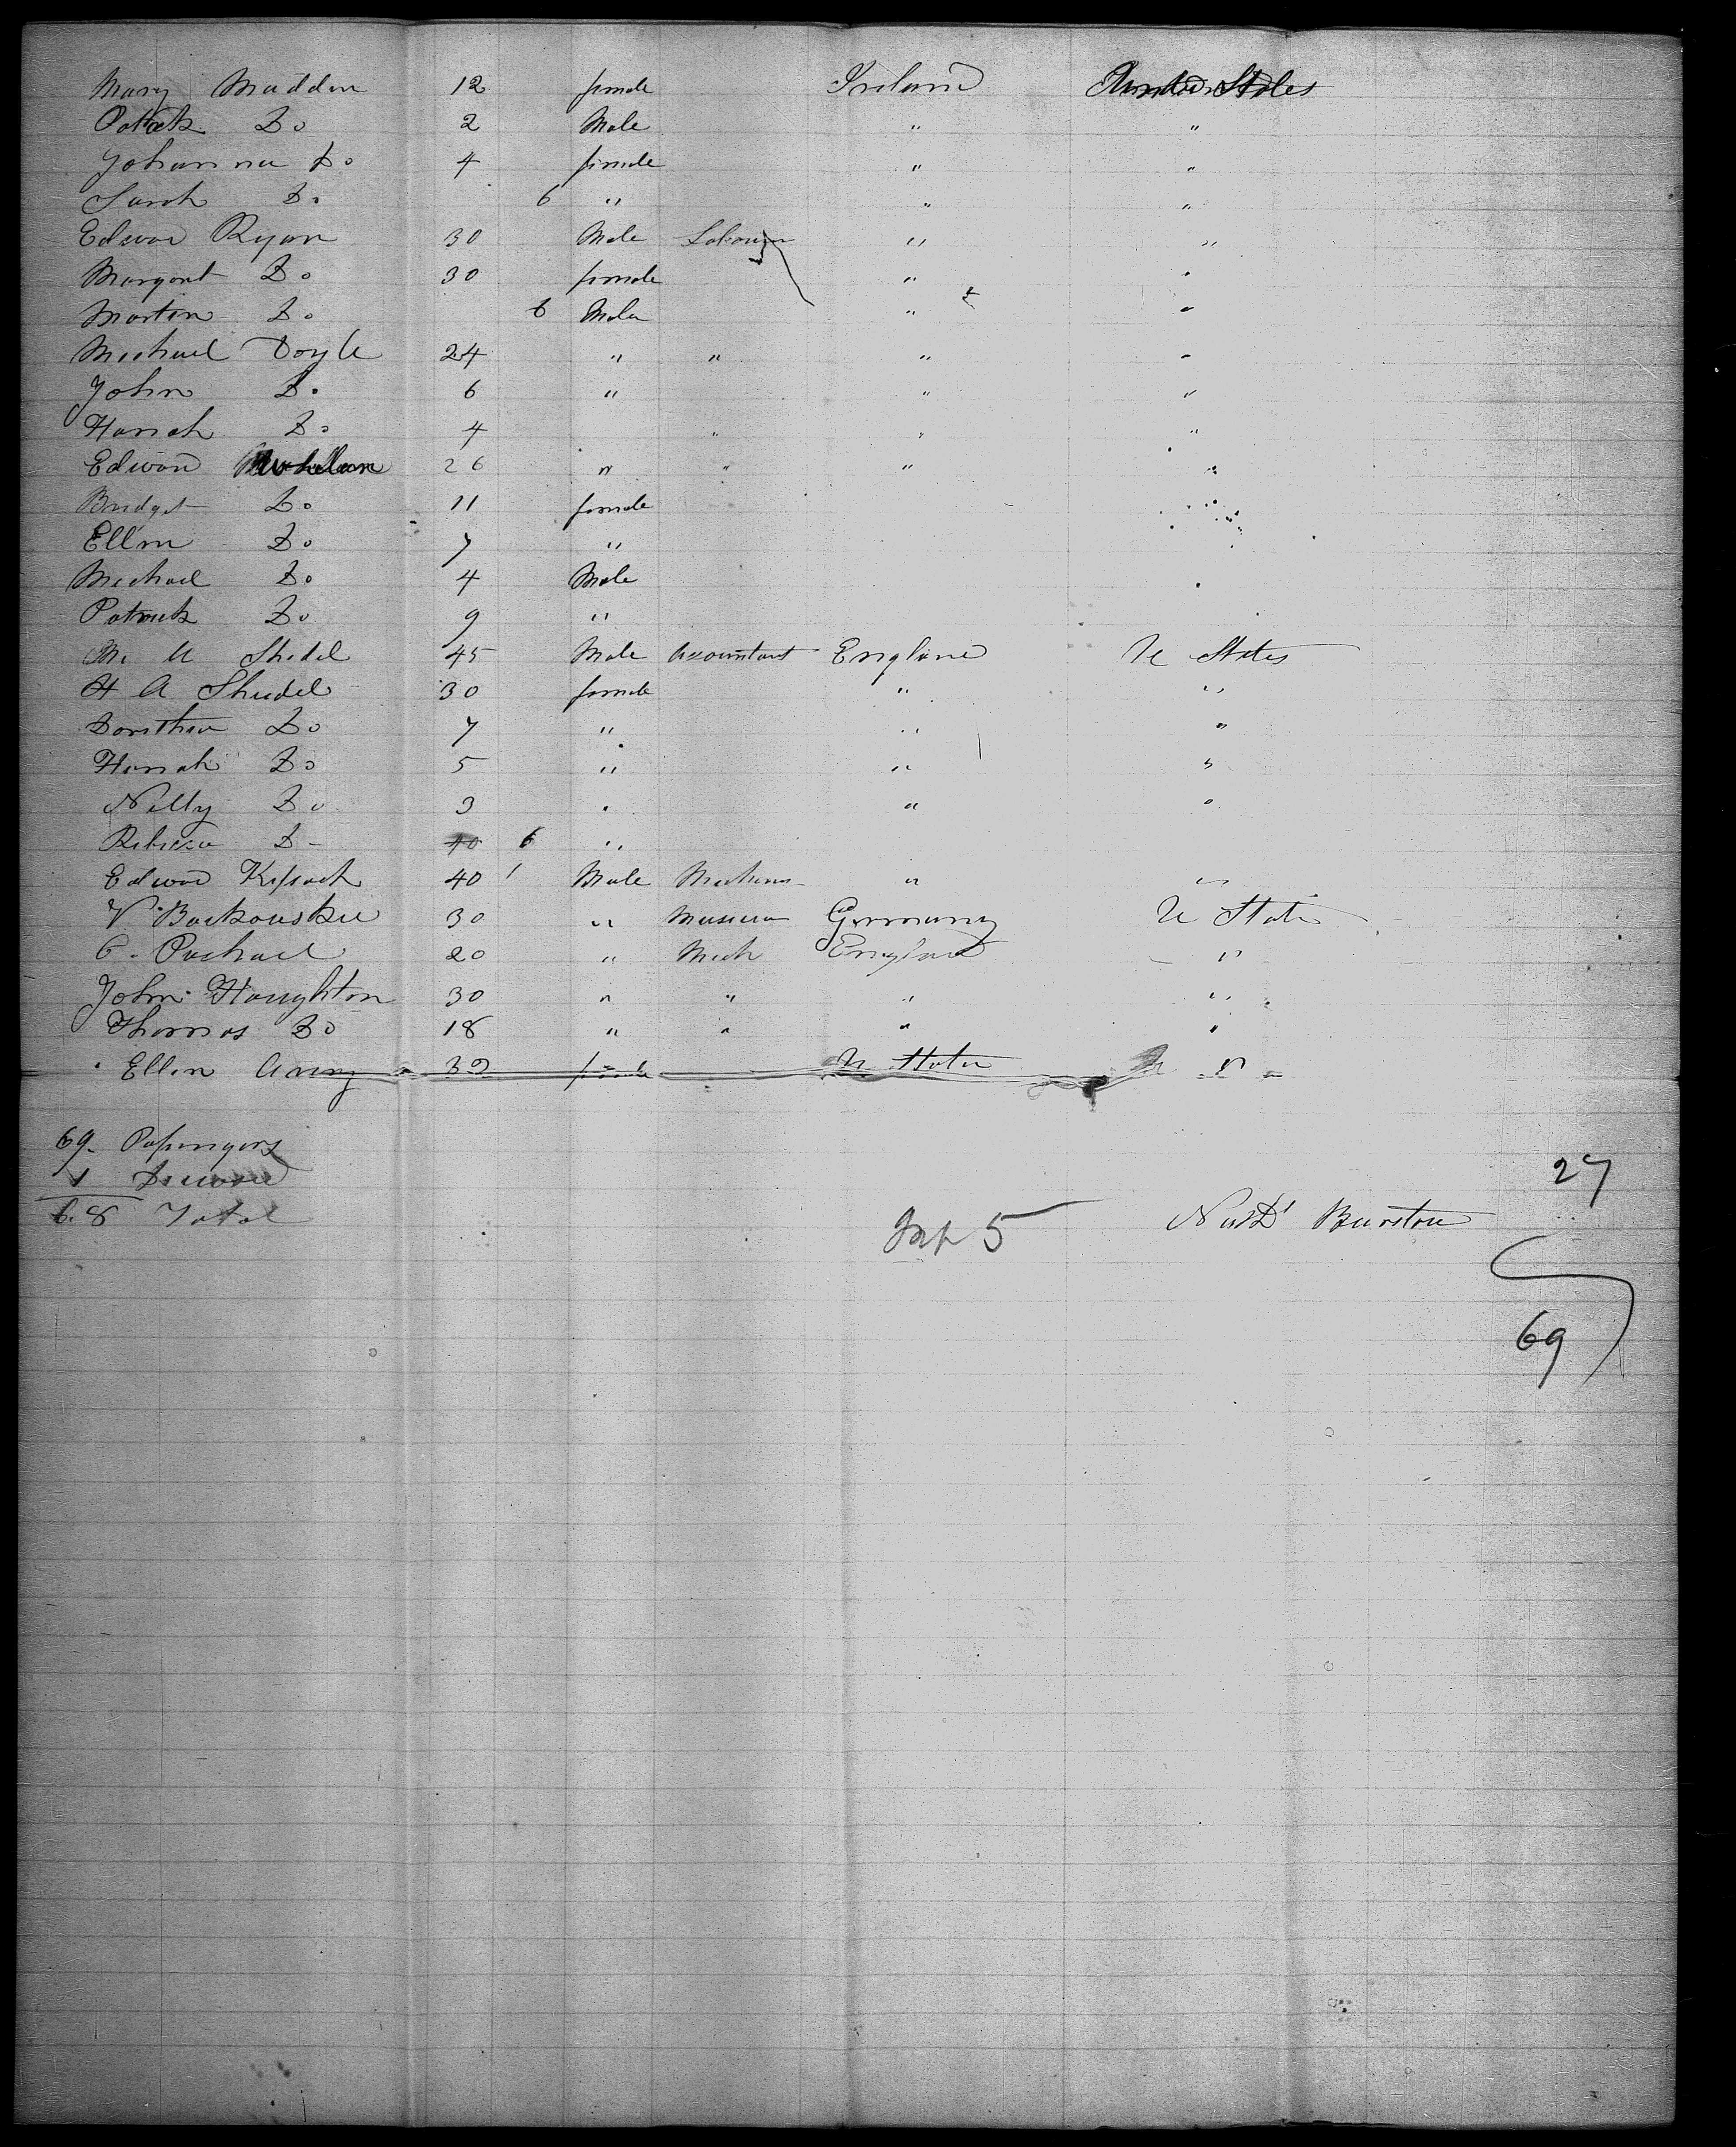 Mary Madden 12 female Ireland United States
Patrick Do 2 Male " "
Johanna Do 4 female " "
Sarah Do 6 " " "
Edwar Ryan 30 Male Labourer " "
Margaret Do 30 female " "
Martin Do 6 Male " "
Michael Doyle 24 " " " "
John Do 6 " " "
Hanah Do 4 " " "
Edward Whelan 26 " " " "
Bridget Do 11 female
Ellen Do 7 "
Michael Do 4 Male
Patrick Do 9 "
Shedel 45 Male Accountant England U States
H A Shedel 30 female " "
Dorithea Do 7 " " "
Hanah Do 5 " " "
Nelly Do 3 " " "
Rebecca D- 10 6 "
Edward 40 Male Mechanic " "
30 " Germany U States
20 " Mech England "
John Houghton 30 " " " "
Thomas Do 18 " " " "
Ellen Avery 30 female U States U "
69 Passengers
1
68 Total
27
5
69